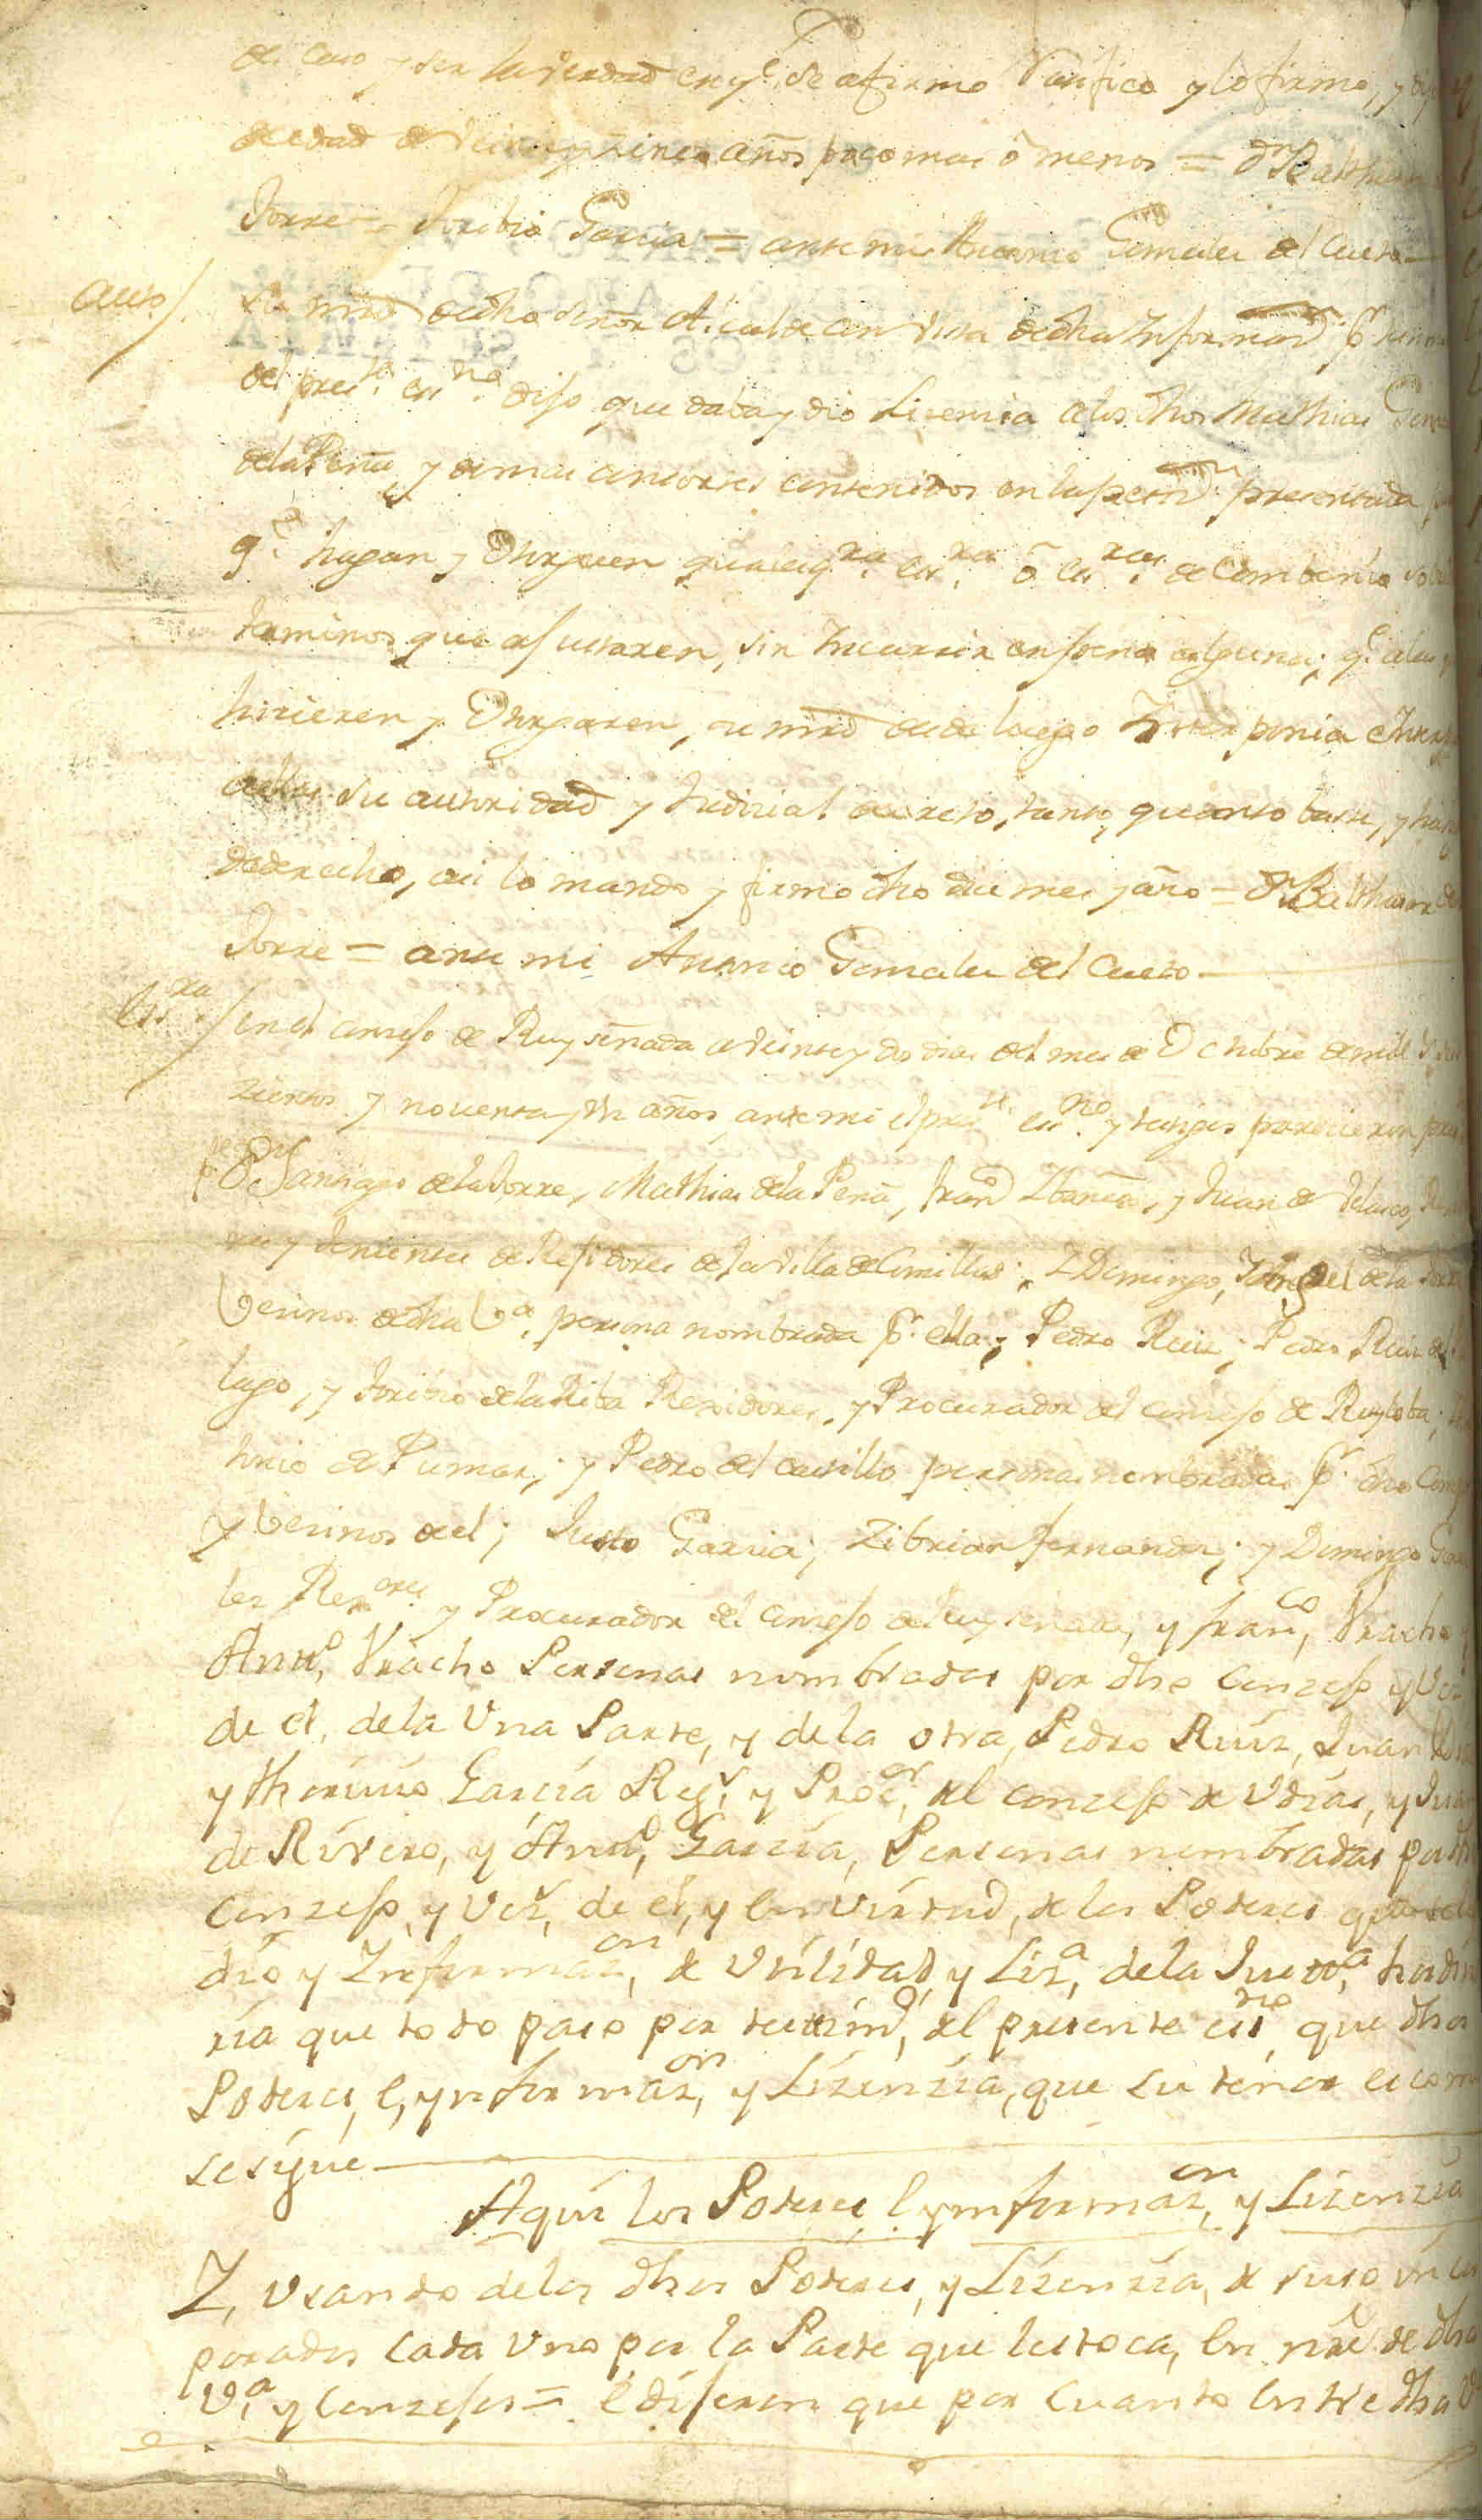 el caso y ser la verdad en q.e se afirmo Ratifico y lo firmo, y dijo
de edad de Veinte y zinco años poco mas ô menos = Dn Balthasar
Torre = Toribio Garcia = ante mi Antonio Gonzalez del Cueto
Auto /. Su mrd de dho señor Alcalde en vista de dha Informaon pr
del press.te ess.no dijo que daba y dio Lizencia a los dhos Mathias
de la Peña, y demas consortes contenidos en la petizn presentada
q.e hagan y Otorguen qualesq.ra ess.ra ô ess.ras de combenio
terminos que ajustaren, sin Incurrir en pena alguna; q.e a las
hicieren y Otorgaren, su mrd desde luego Interponia e Interp
a ellas su autoridad y Judizial decreto, tanto, quanto baste, y
de derecho, asi lo mando y firmo dho dia mes y año = Dn Balthasar de
Torre = ante mi Antonio Gonzalez del Cueto
Ess.ra / en el conzejo de Ruyseñada a Veinte y dos dias del mes de Octubre de mill
zientos y noventa y años, ante mi el press.te ess.no y testigos parecieron
Dn Santiago de la Torre, Mathias de la Peña, Franco Ibañez, y Juan de Velasco,
y teniente de Rejidores de la Villa de Comillas; I Domingo, de la
Vezinos de dha V.a persona nombrada pr. ella; Pedro Ruiz; Pedro Ruiz del
lugo, y Toribio de la Riba Rexidores, y Procurador del conzejo de Ruyloba;
tonio de Pumar; y Pedro del castillo personas nombradas pr. dho Conz
y Vezinos de el; Justo Garzia; Zibrian fernandez; y Domingo Gonza
lez Rex.ores y Procurador del conzejo de Ruyseñada, y Fran.co Vracho
Antt.o Vracho Personas nombradas por dho Conzejo y Vez
de el, de la Vna Parte, y de la otra, Pedro Ruiz, Juan
y thoriuio Garzia Reg.r y Proc.or del conzejo de Vdias, y Juan
de Rivero, y Antt.o Garzia, Personas nombradas por dho
Conzejo, y Vez.s de el, y en virtud, de los Poderes
dio y Informaz.on de Vtilidad, y Liz.a de la Justt.a hordin
ria que todo paso por testim.o del presente ess.no que dhos
Poderes, e, ynformaz.on y Lizenzia, que su tenor es como
se sigue
Aqui los Poderes, e ynformaz.on y Lizenzia
I, Vsando de los dhos Poderes, y Lizenzia, de suso incor
porados Cada Vno por la Parte que les toca, En nre de dha
V.a y Conzejos = e dijeron que por Cuanto Entre dha